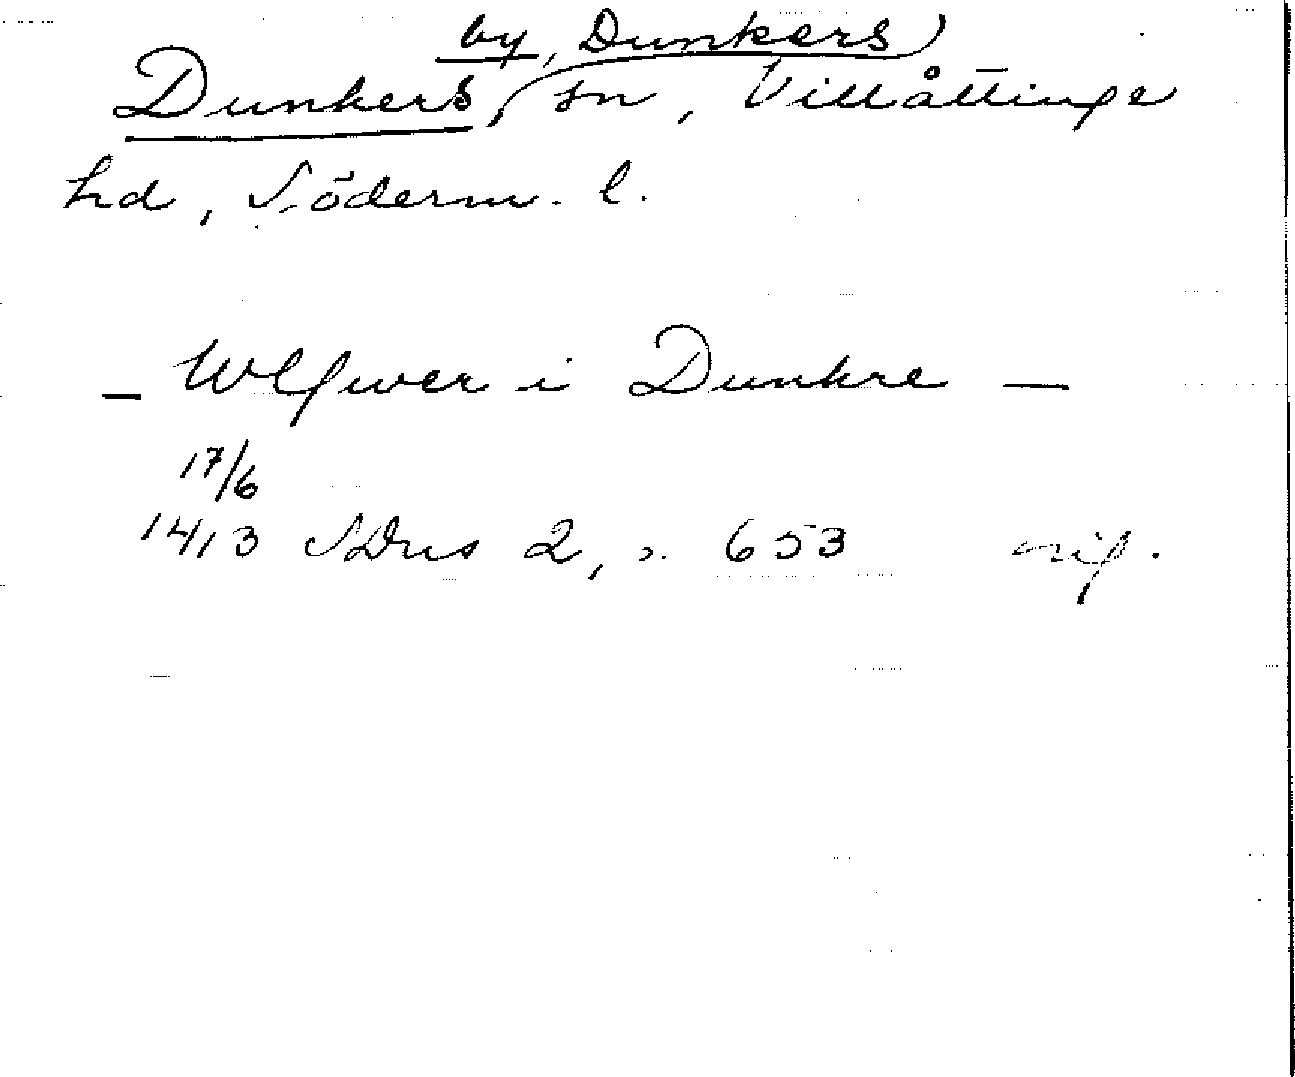 by, Dunkers
Dunkers, sn, Villåttinge
hd, Söderm. l.
— Wlfwer i Dunkre —
17/6
1413 SDns 2, s. 653 rif.